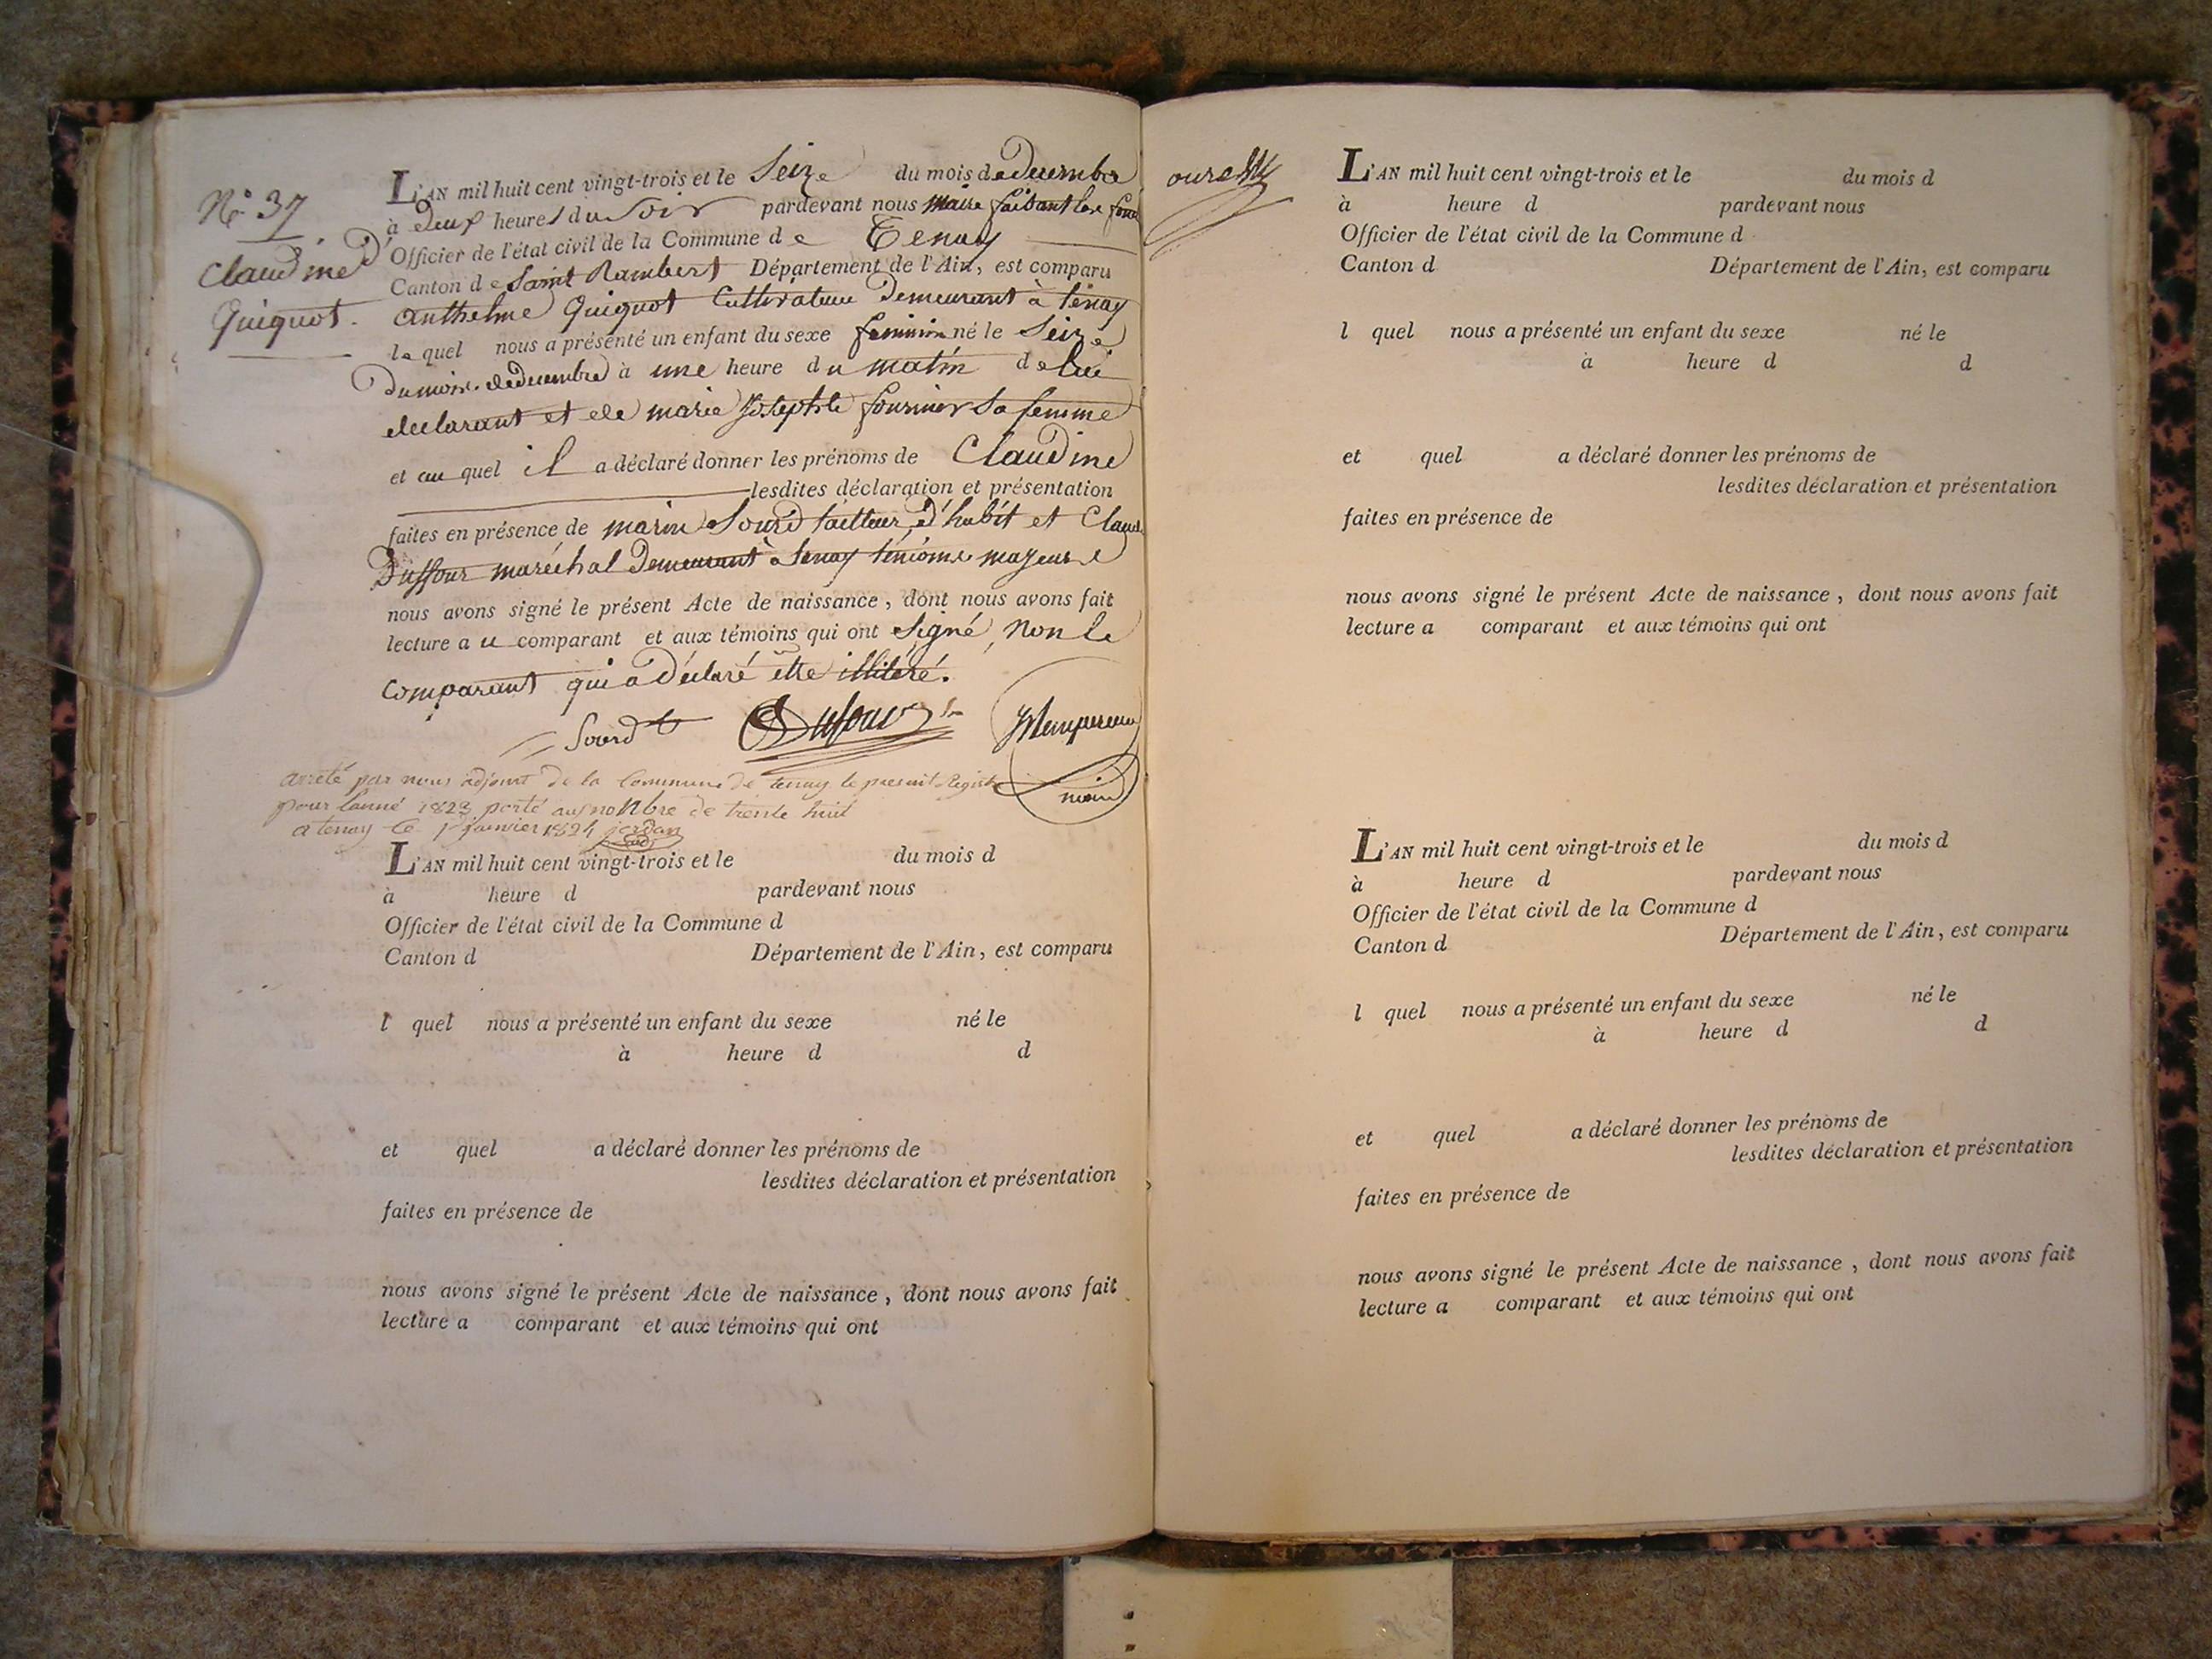 N° 37
Claudine
Guignot.
L'AN mil huit cent vingt-trois et le Seize du mois de decembre
à deux heures du Soir pardevant nous maire faisant les fonc
Officier de l'état civil de la Commune de Tenay
Canton de Saint Rambert Département de l'Ain, est comparu
anthelme Guignot Cultivateur Demeurant à tenay
lequel nous a présenté un enfant du sexe feminin né le Seize
Du mois de decembre à une heure du matin de lui
declarant et de marie Josephte fournier Sa femme
et au quel il a déclaré donner les prénoms de Claudine
lesdites déclaration et présentation
faites en présence de marin Sourd tailleur d'habit et Claude
Duffour maréchal Demeurant à tenay témoins majeurs
nous avons signé le présent Acte de naissance, dont nous avons fait
lecture au comparant et aux témoins qui ont Signé, non le
comparant qui a déclaré être illitéré.
Sourd Dufour
arreté par nous adjoint de la Commune de tenay le present Registre
pour lanné 1823 porté au nonbre de trente huit
a tenay le 1er janvier 1824 jordan
adj
L'AN mil huit cent vingt-trois et le du mois d
à heure d pardevant nous
Officier de l'état civil de la Commune d
Canton d Département de l'Ain, est comparu
l quel nous a présenté un enfant du sexe né le
à heure d d
et quel a déclaré donner les prénoms de
lesdites déclaration et présentation
faites en présence de
nous avons signé le présent Acte de naissance, dont nous avons fait
lecture a comparant et aux témoins qui ont
L'AN mil huit cent vingt-trois et le du mois d
à heure d pardevant nous
Officier de l'état civil de la Commune d
Canton d Département de l'Ain, est comparu
l quel nous a présenté un enfant du sexe né le
à heure d d
et quel a déclaré donner les prénoms de
lesdites déclaration et présentation
faites en présence de
nous avons signé le présent Acte de naissance, dont nous avons fait
lecture a comparant et aux témoins qui ont
L'AN mil huit cent vingt-trois et le du mois d
à heure d pardevant nous
Officier de l'état civil de la Commune d
Canton d Département de l'Ain, est comparu
l quel nous a présenté un enfant du sexe né le
à heure d d
et quel a déclaré donner les prénoms de
lesdites déclaration et présentation
faites en présence de
nous avons signé le présent Acte de naissance, dont nous avons fait
lecture a comparant et aux témoins qui ont